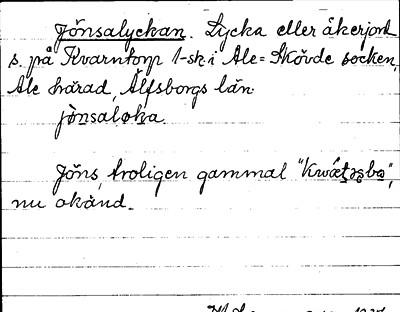 Jönsalyckan. Lycka eller åkerjord
s. på Kvarntorp 1-sk i Ale-Skövde socken,
Ale härad, Älfsborgs län.
Jöns, troligen gammal
nu okänd.